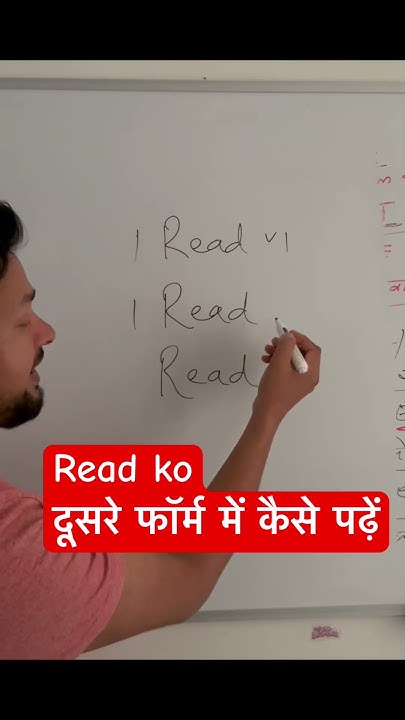 1 Read v1
1 Read
Read
Read ko
दूसरे फॉर्म में कैसे पढ़ें